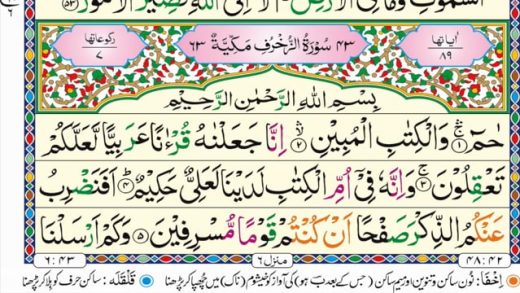 السَّمٰوٰتِ وَمَا فِي الْاَرْضِ ؕ اَلَاۤ اِلَى اللّٰهِ تَصِيْرُ الْاُمُوْرُ ۟﴿۵۳﴾
اٰيَاتُهَا ۸۹ ﴿۴۳﴾ سُوْرَةُ الزُّخْرُفِ مَكِّيَّةٌ ﴿۶۳﴾ رُكُوْعَاتُهَا ۷
بِسْمِ اللّٰهِ الرَّحْمٰنِ الرَّحِيْمِ
حٰمٓ ۚ﴿۱﴾ وَالْكِتٰبِ الْمُبِيْنِ ۙ﴿۲﴾ اِنَّا جَعَلْنٰهُ قُرْءٰنًا عَرَبِيًّا لَّعَلَّكُمْ
تَعْقِلُوْنَ ۚ﴿۳﴾ وَاِنَّهٗ فِيْۤ اُمِّ الْكِتٰبِ لَدَيْنَا لَعَلِيٌّ حَكِيْمٌ ؕ﴿۴﴾ اَفَنَضْرِبُ
عَنْكُمُ الذِّكْرَ صَفْحًا اَنْ كُنْتُمْ قَوْمًا مُّسْرِفِيْنَ ﴿۵﴾ وَكَمْ اَرْسَلْنَا
۶ : ۴۳ منزل ۶ ۴۸ : ۴۲
اِخفَا: نُون ساکن و تنوین اور میم ساکن (جس کے بعد ب ہو) کی آواز کو خیشوم (ناک) میں چھپا کر پڑھنا قَلْقَلَہ: ساکن حرف کو ہلا کر پڑھنا